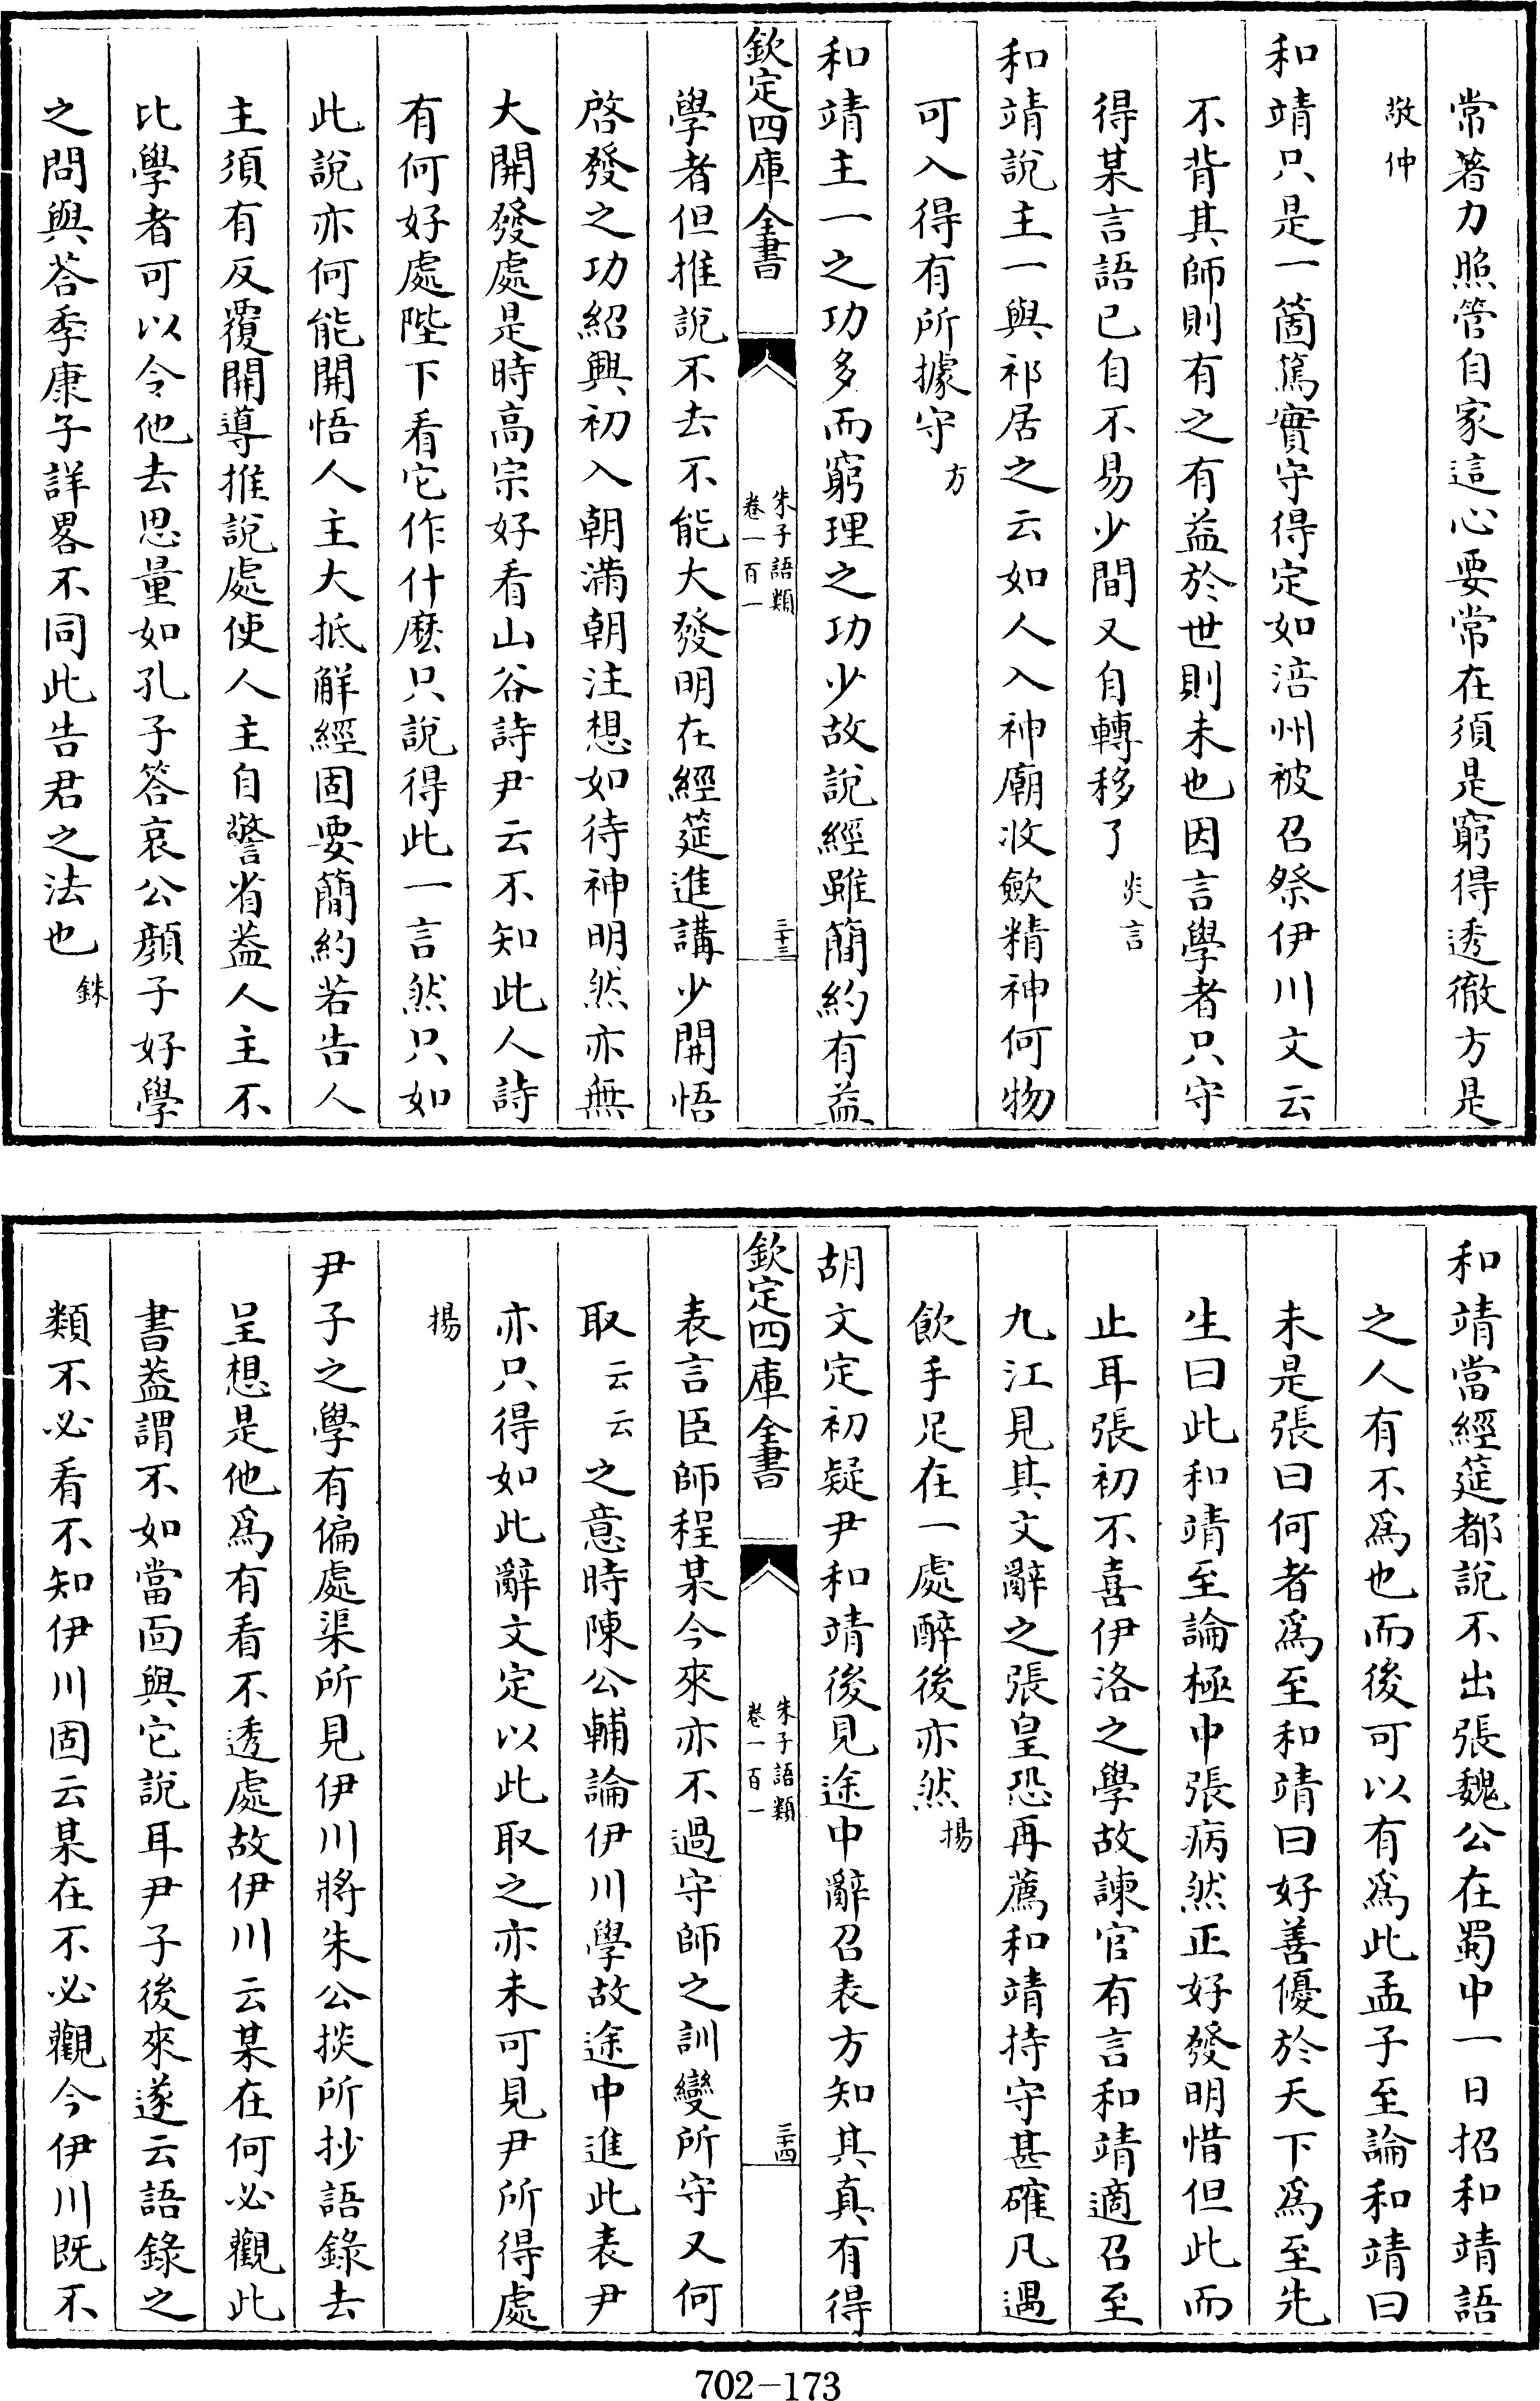 常著力照管自家這心要常在須是窮得透徹方是
敬仲
和靖只是一箇篤實守得定如涪州被召祭伊川文云
不背其師則有之有益於世則未也因言學者只守
得某言語已自不易少間又自轉移了炎言
和靖說主一與祁居之云如人入神廟收歛精神何物
可入得有所據守方
和靖主一之功多而窮理之功少故說經雖簡約有益
欽定四庫全書
朱子語類
卷一百一
三十三
學者但推說不去不能大發明在經筵進講少開悟
啓發之功紹興初入朝滿朝注想如待神明然亦無
大開發處是時高宗好看山谷詩尹云不知此人詩
有何好處陛下看它作什麽只說得此一言然只如
此說亦何能開悟人主大抵解經固要簡約若告人
主須有反覆開導推說處使人主自警省葢人主不
比學者可以令他去思量如孔子答哀公顔子好學
之問與荅季康子詳畧不同此告君之法也銖
和靖當經筵都說不出張魏公在蜀中一日招和靖語
之人有不爲也而後可以有爲此孟子至論和靖曰
未是張曰何者爲至和靖曰好善優於天下爲至先
生曰此和靖至論極中張病然正好發明惜但此而
止耳張初不喜伊洛之學故諫官有言和靖適召至
九江見其文辭之張皇恐再薦和靖持守甚確凡遇
飲手足在一處醉後亦然揚
胡文定初疑尹和靖後見途中辭召表方知其真有得
欽定四庫全書
朱子語類
卷一百一
三十四
表言臣師程某今來亦不過守師之訓變所守又何
取云云之意時陳公輔論伊川學故途中進此表尹
亦只得如此辭文定以此取之亦未可見尹所得處
揚
尹子之學有偏處渠所見伊川將朱公掞所抄語錄去
呈想是他爲有看不透處故伊川云某在何必觀此
書葢謂不如當面與它說耳尹子後來遂云語錄之
類不必看不知伊川固云某在不必觀今伊川既不
702-173